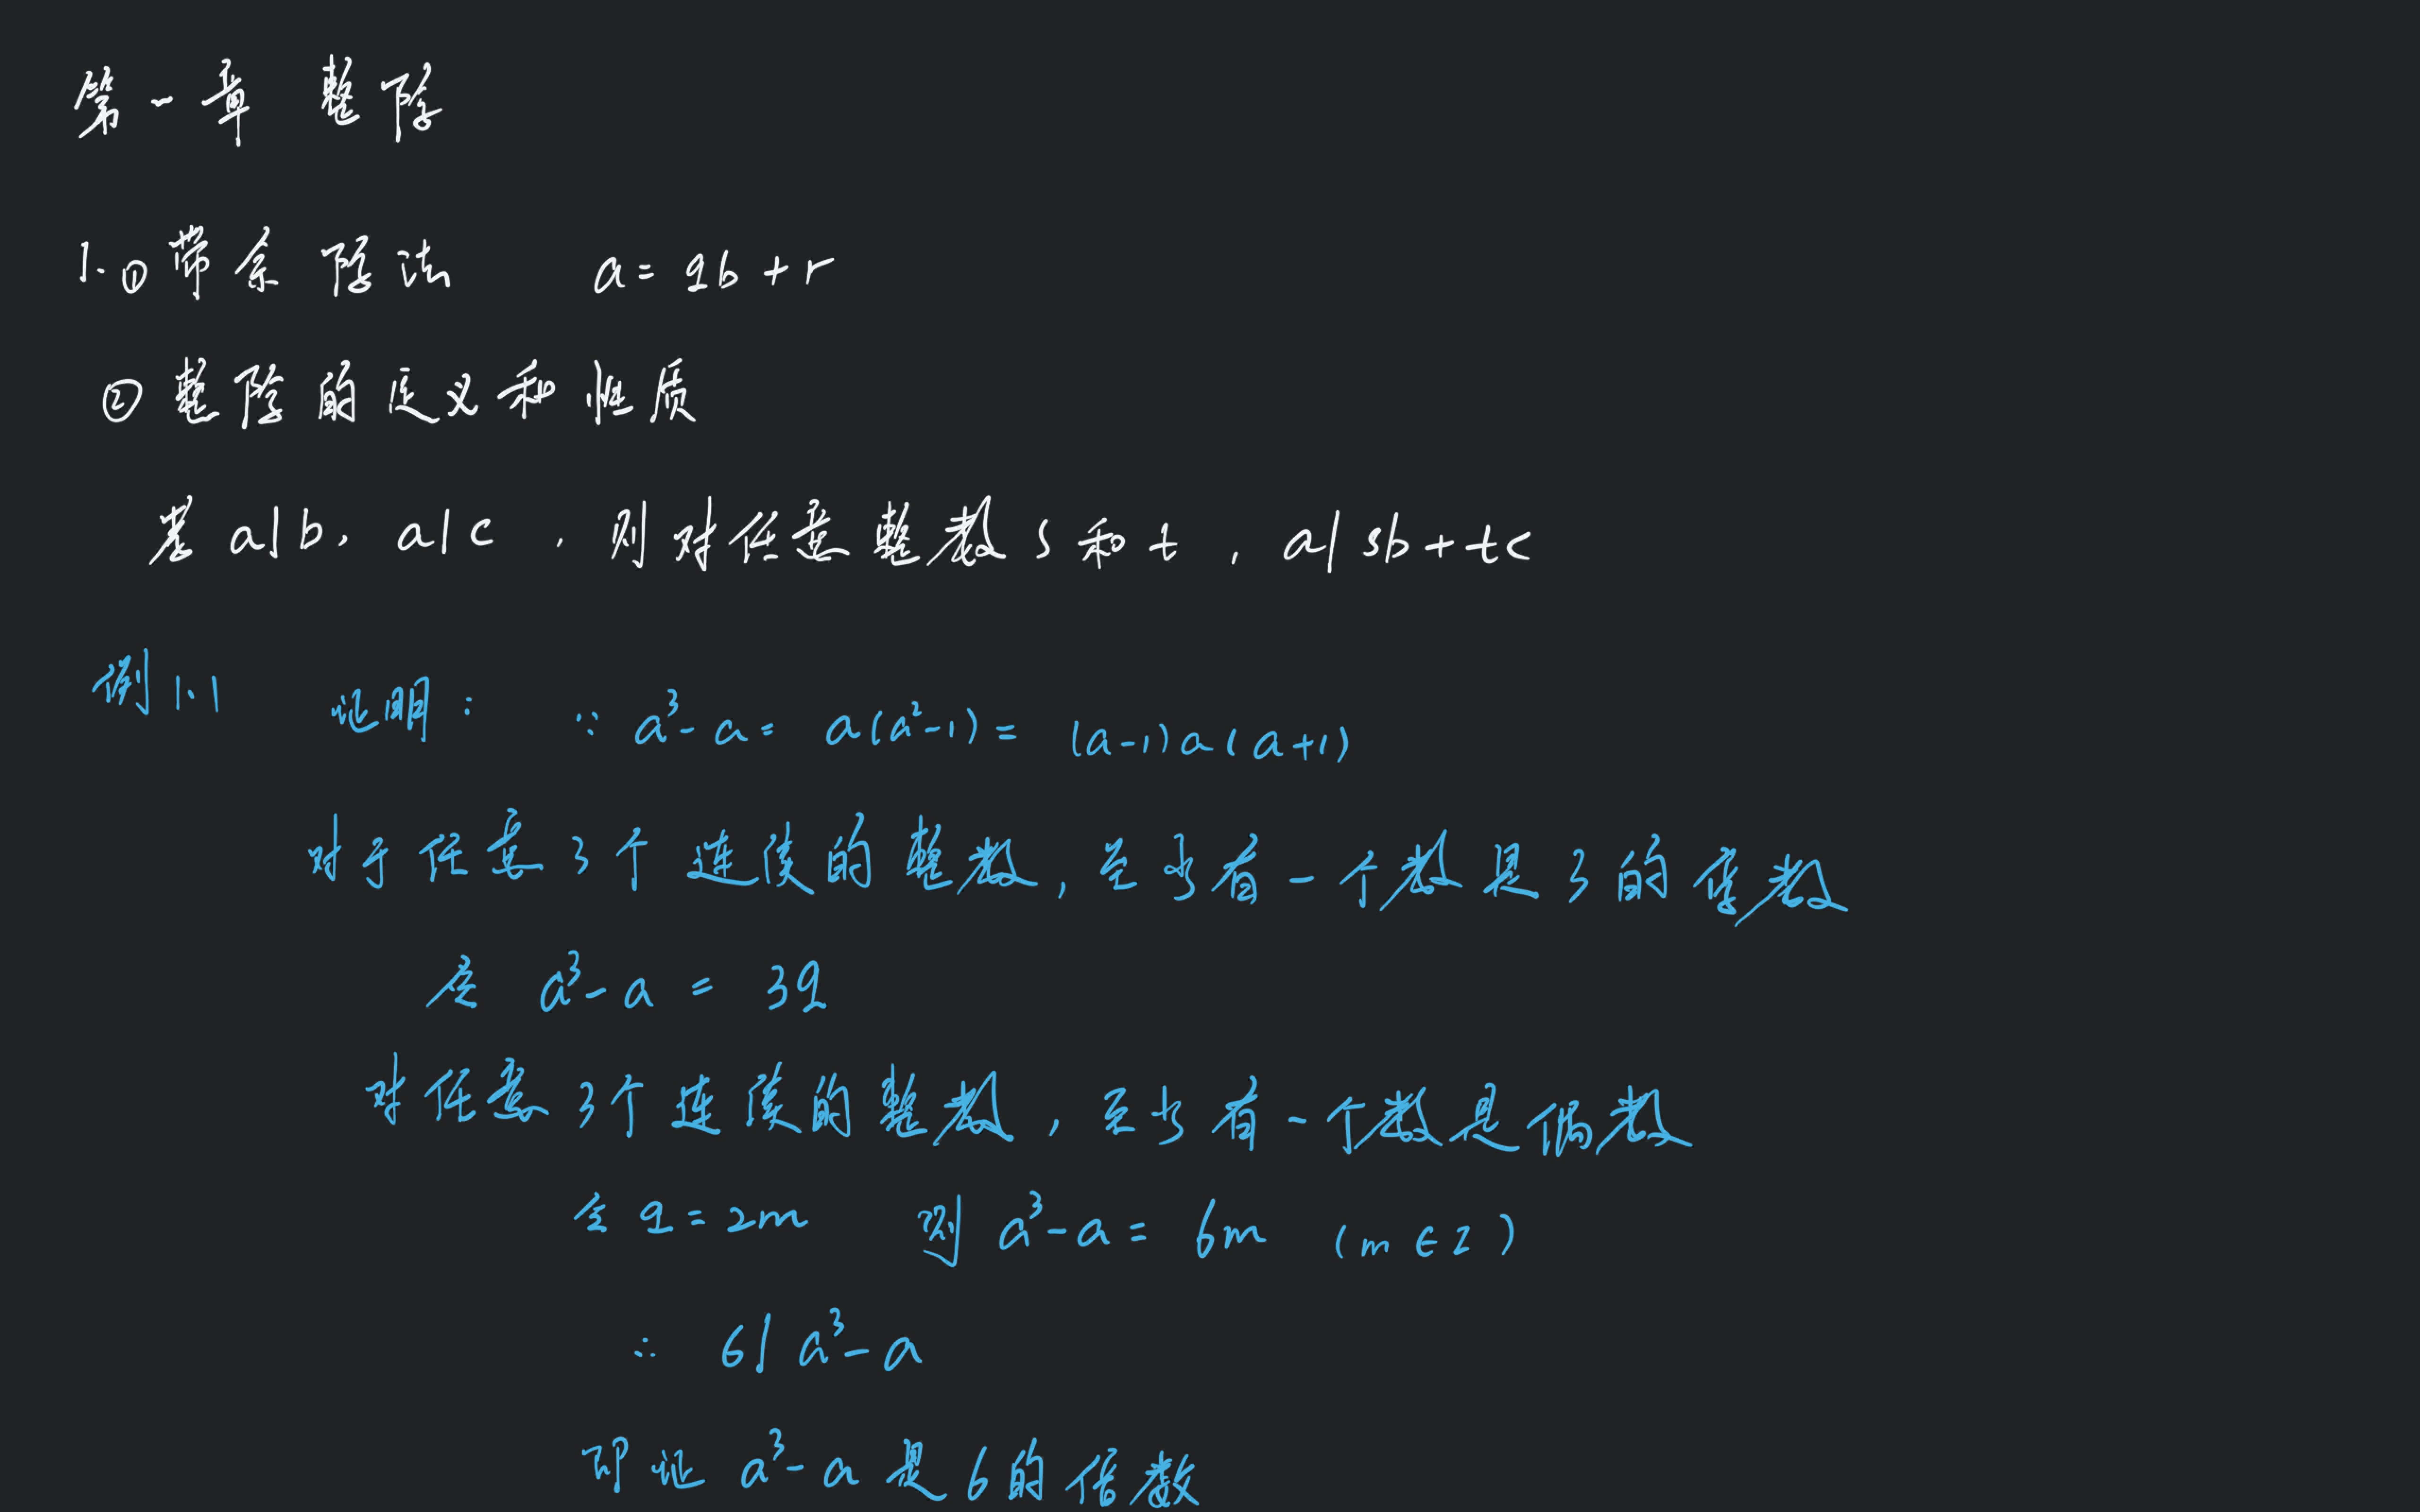 第一章 整除
1.①带余除法 a=qb+r
②整除的定义和性质
若a|b,a|c,则对任意整数s和t,a|sb+tc
例1.1 证明:∵a³-a=a(a²-1)=(a-1)a(a+1)
对于任意3个连续的整数,至少有一个数是3的倍数
令 a³-a=3q
对任意3个连续的整数,至少有一个数是偶数
令q=2m 则a³-a=6m (m∈Z)
∴ 6|a³-a
即证a³-a是6的倍数